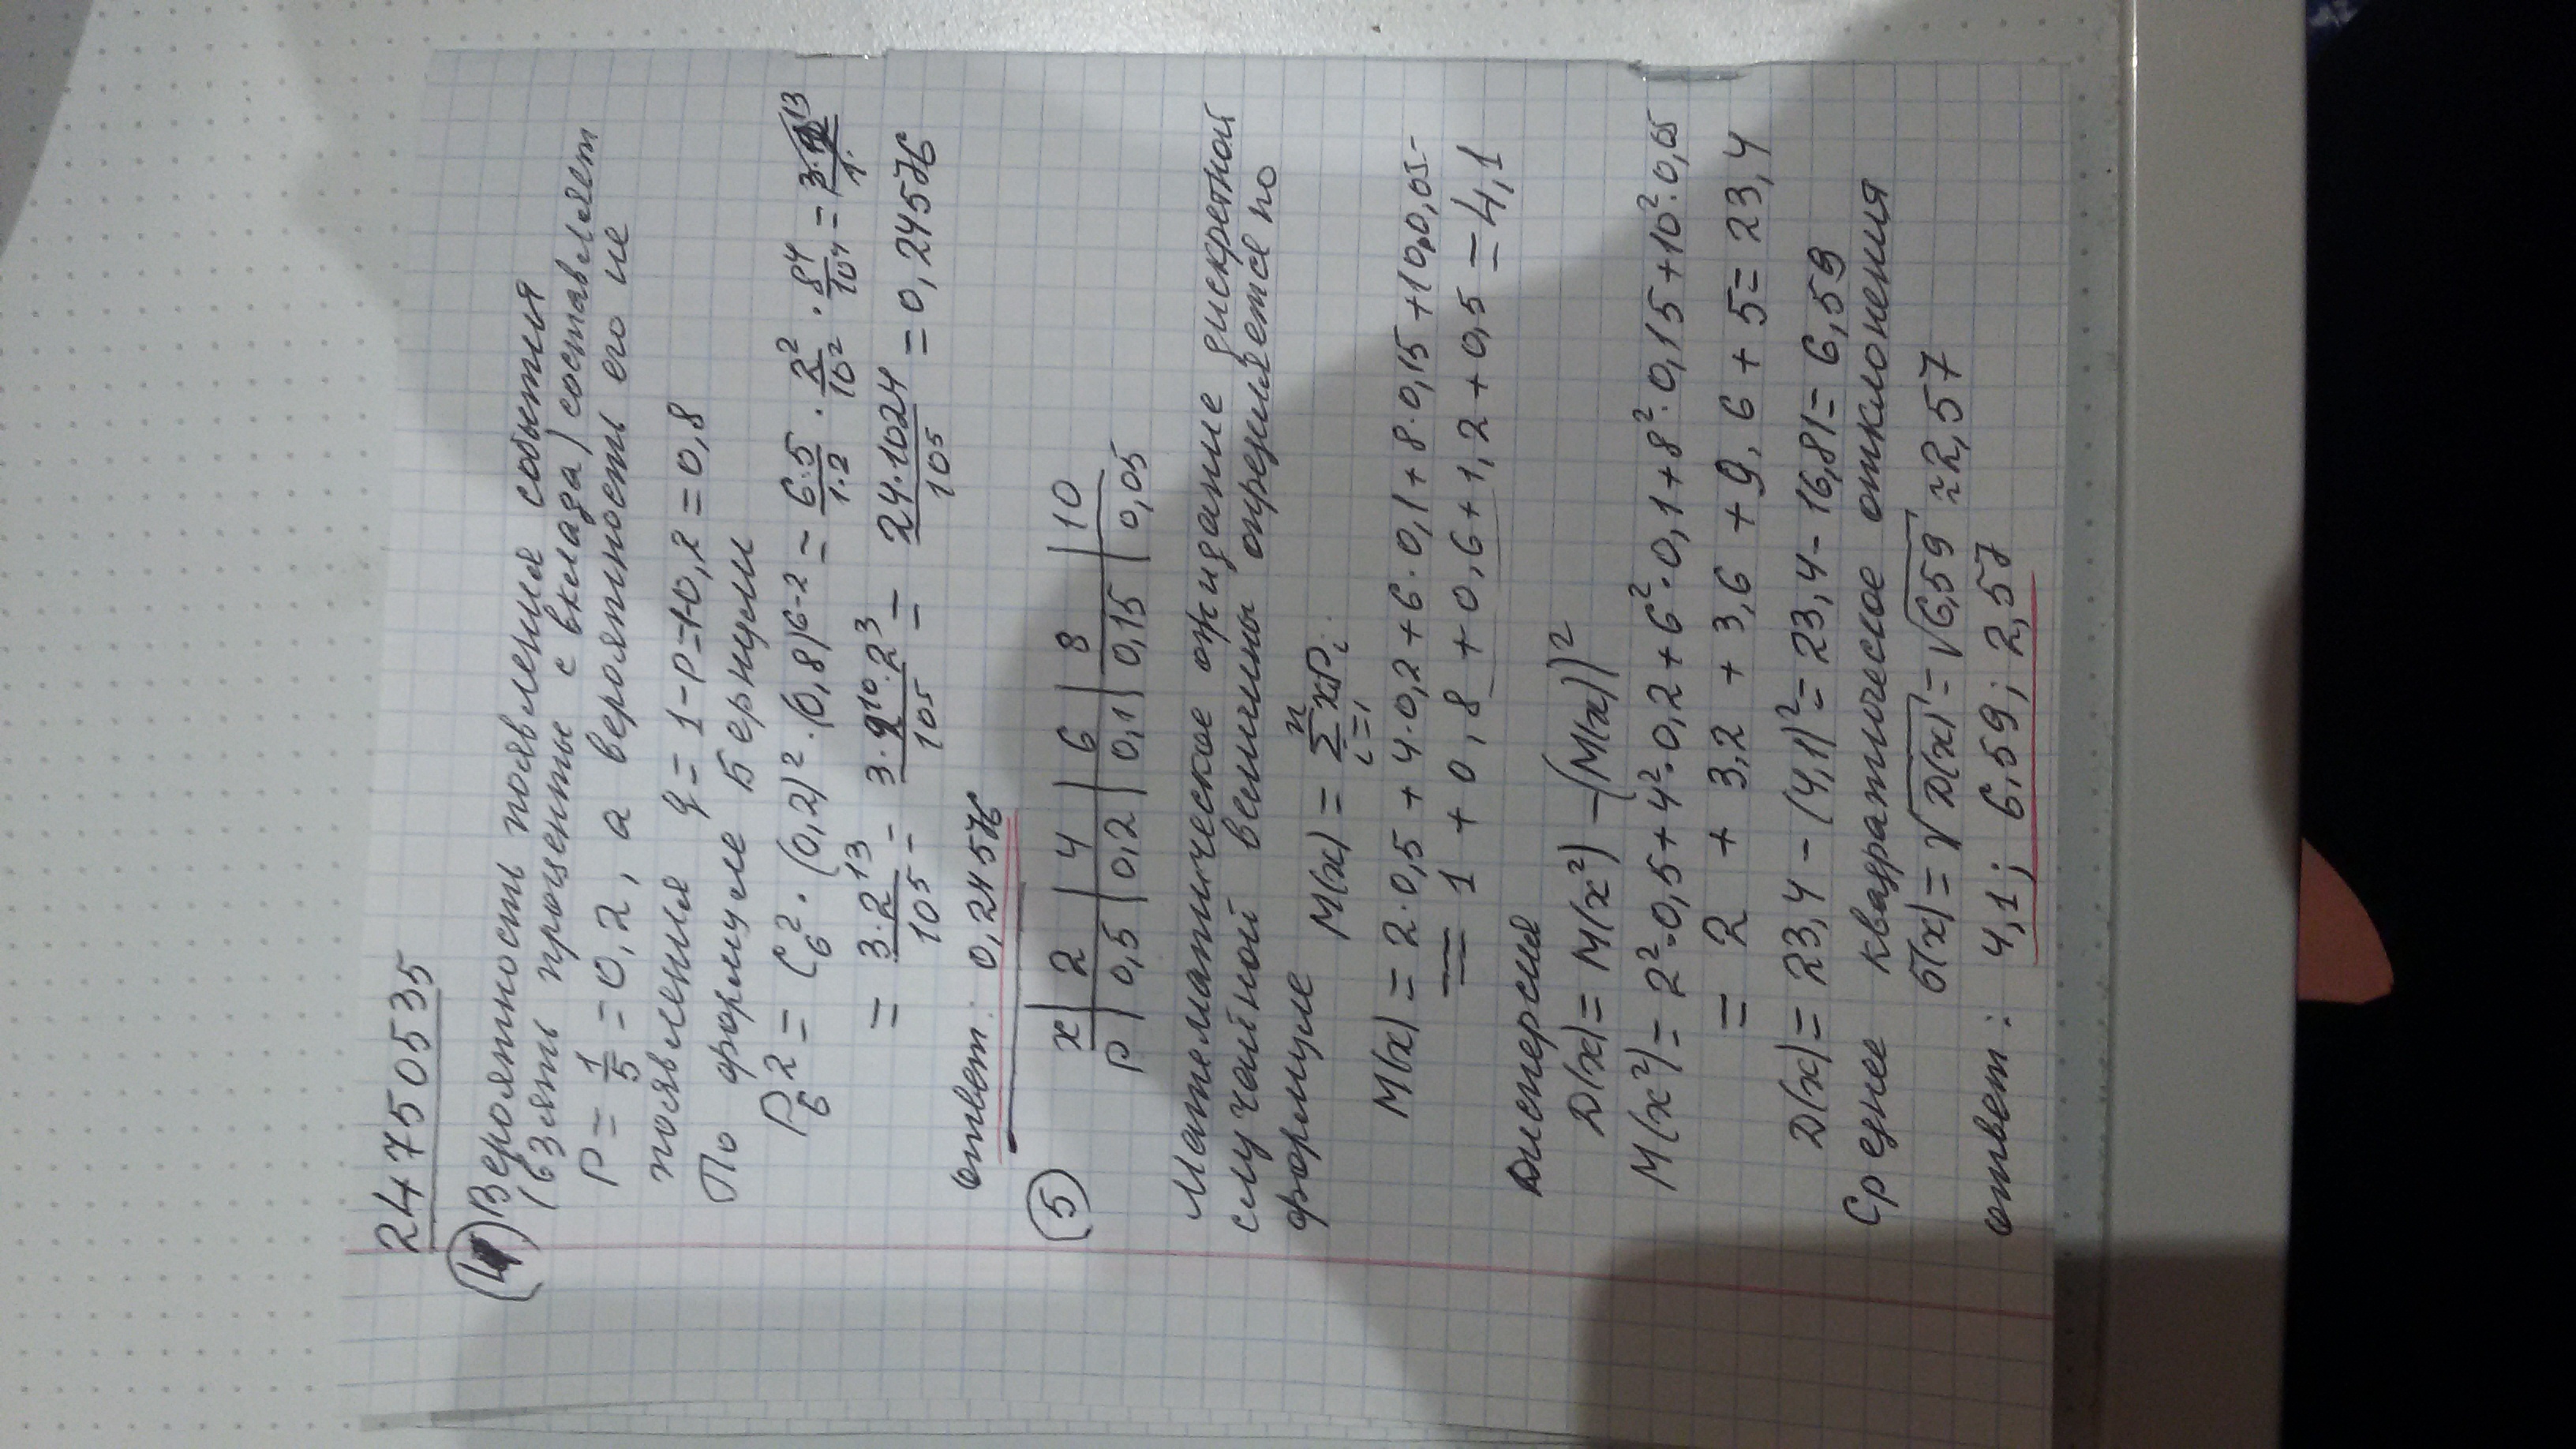 247 50535
(4) Вероятность появления события
(взять проценты с вклада) составляет
P = 1/5 = 0,2, а вероятность его не
появления q = 1-p = 1-0,2 = 0,8
По формуле Бернули
P₆2 = C₆² · (0,2)² · (0,8)⁶⁻² = 6·5/1·2 · 2²/10² · 8⁴/10⁴ =
= 3·2¹³/10⁵ = 3·2¹⁰·2³/10⁵ = 24·1024/10⁵ = 0,24576
ответ: 0,24576
(5) x | 2 | 4 | 6 | 8 | 10
P | 0,5 | 0,2 | 0,1 | 0,15 | 0,05
Математическое ожидание дискретной
случайной величины определяется по
формуле M(x) = Σ xᵢPᵢ n i=1
M(x) = 2·0,5 + 4·0,2 + 6·0,1 + 8·0,15 + 10·0,05=
= 1 + 0,8 + 0,6 + 1,2 + 0,5 = 4,1
Дисперсия
D(x) = M(x²) - (M(x))²
M(x²) = 2²·0,5 + 4²·0,2 + 6²·0,1 + 8²·0,15 + 10²·0,05
= 2 + 3,2 + 3,6 + 9,6 + 5 = 23,4
D(x) = 23,4 - (4,1)² = 23,4 - 16,81 = 6,59
Среднее квадратическое отклонения
σ(x) = √D(x) = √6,59 ≈ 2,57
ответ: 4,1; 6,59; 2,57